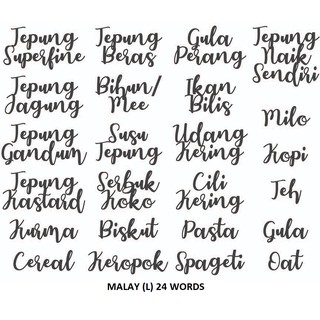 Tepung
Superfine
Tepung
Beras
Gula
Perang
Tepung
Naik
Sendiri
Tepung
Jagung
Bihun/
Mee
Ikan
Bilis
Milo
Tepung
Gandum
Susu
Tepung
Udang
Kering
Kopi
Tepung
Kastard
Serbuk
Koko
Cili
Kering
Teh
Kurma
Biskut
Pasta
Gula
Cereal
Keropok
Spageti
Oat
MALAY (L) 24 WORDS